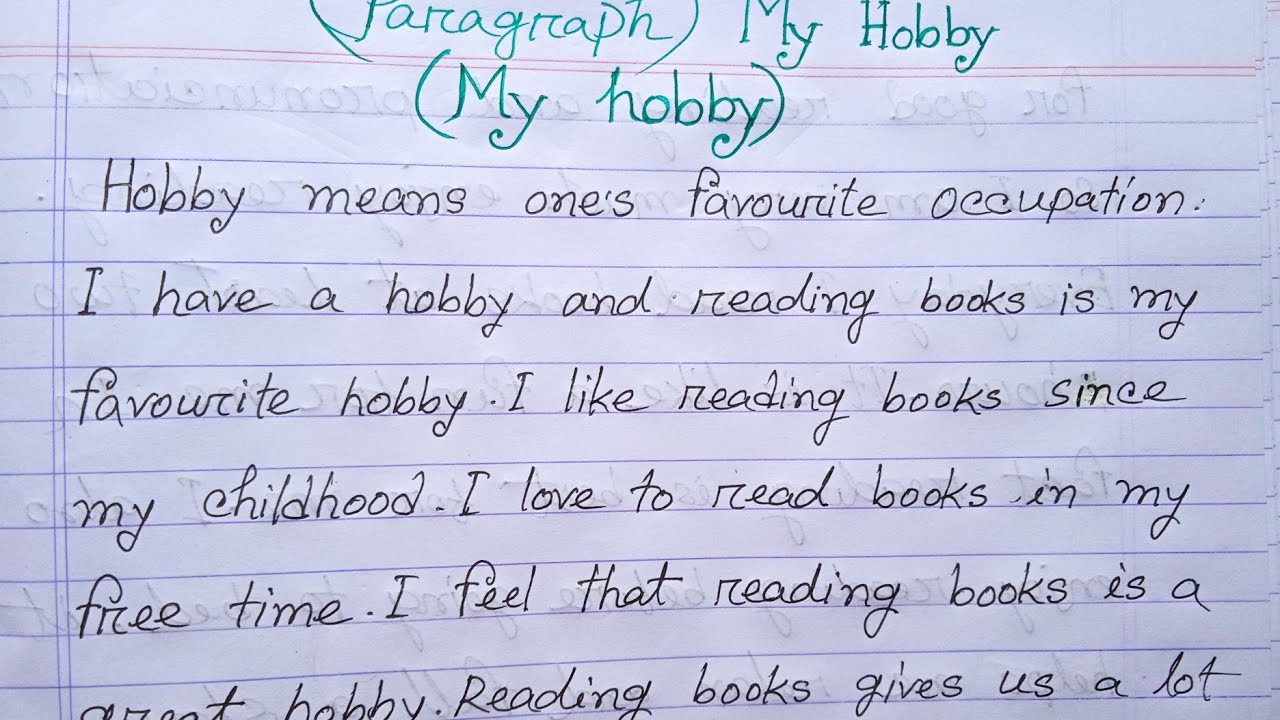 (Paragraph) My Hobby
(My hobby)
Hobby means one's favourite occupation.
I have a hobby and reading books is my
favourite hobby. I like reading books since
my childhood. I love to read books in my
free time. I feel that reading books is a
great hobby. Reading books gives us a lot